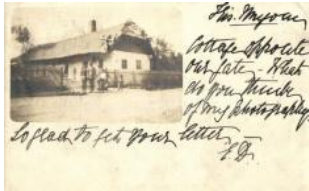 Cottage opposite
our gate - What
do you think
of my photography
So glad to get your letter -